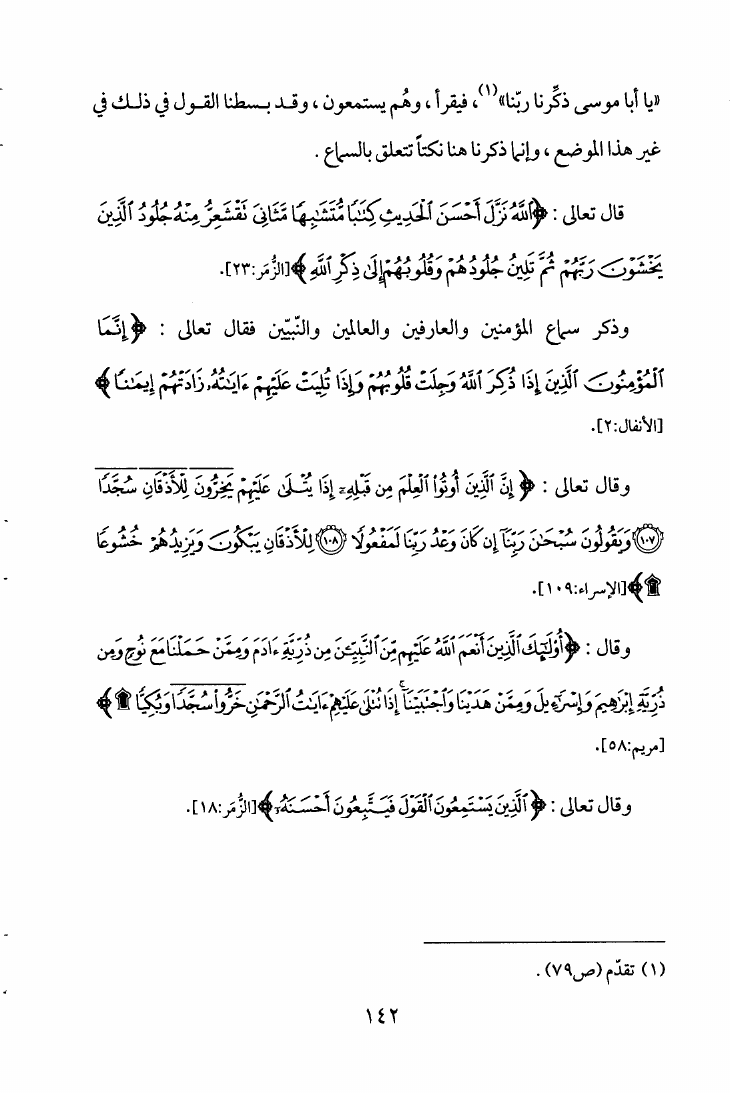 «يا أبا موسى ذكِّرنا ربّنا»(١)، فيقرأ، وهُم يستمعون، وقد بسطنا القول في ذلك في
غير هذا الموضع، وإنما ذكرنا هنا نكتاً تتعلق بالسماع.
قال تعالى: ﴿ٱللَّهُ نَزَّلَ أَحْسَنَ ٱلْحَدِيثِ كِتَٰبًا مُّتَشَٰبِهًا مَّثَانِىَ تَقْشَعِرُّ مِنْهُ جُلُودُ ٱلَّذِينَ
يَخْشَوْنَ رَبَّهُمْ ثُمَّ تَلِينُ جُلُودُهُمْ وَقُلُوبُهُمْ إِلَىٰ ذِكْرِ ٱللَّهِ﴾ [الزُّمَر:٢٣].
وذكر سماع المؤمنين والعارفين والعالمين والنّبيّين فقال تعالى: ﴿إِنَّمَا
ٱلْمُؤْمِنُونَ ٱلَّذِينَ إِذَا ذُكِرَ ٱللَّهُ وَجِلَتْ قُلُوبُهُمْ وَإِذَا تُلِيَتْ عَلَيْهِمْ ءَايَٰتُهُۥ زَادَتْهُمْ إِيمَٰنًا﴾
[الأنفال:٢].
وقال تعالى: ﴿إِنَّ ٱلَّذِينَ أُوتُوا۟ ٱلْعِلْمَ مِن قَبْلِهِۦٓ إِذَا يُتْلَىٰ عَلَيْهِمْ يَخِرُّونَ لِلْأَذْقَانِ سُجَّدًا
﴿١٠٧﴾ وَيَقُولُونَ سُبْحَٰنَ رَبِّنَآ إِن كَانَ وَعْدُ رَبِّنَا لَمَفْعُولًا ﴿١٠٨﴾ لِلْأَذْقَانِ يَبْكُونَ وَيَزِيدُهُمْ خُشُوعًا
۩﴾ [الإسراء:١٠٩].
وقال: ﴿أُو۟لَٰٓئِكَ ٱلَّذِينَ أَنْعَمَ ٱللَّهُ عَلَيْهِم مِّنَ ٱلنَّبِيِّـۧنَ مِن ذُرِّيَّةِ ءَادَمَ وَمِمَّنْ حَمَلْنَا مَعَ نُوحٍ وَمِن
ذُرِّيَّةِ إِبْرَٰهِيمَ وَإِسْرَٰٓءِيلَ وَمِمَّنْ هَدَيْنَا وَٱجْتَبَيْنَآ ۚ إِذَا تُتْلَىٰ عَلَيْهِمْ ءَايَٰتُ ٱلرَّحْمَٰنِ خَرُّوا۟ سُجَّدًا وَبُكِيًّا ۩﴾
[مريم:٥٨].
وقال تعالى: ﴿ٱلَّذِينَ يَسْتَمِعُونَ ٱلْقَوْلَ فَيَتَّبِعُونَ أَحْسَنَهُۥٓ﴾ [الزُّمَر:١٨].
(١) تقدّم (ص٧٩).
١٤٢